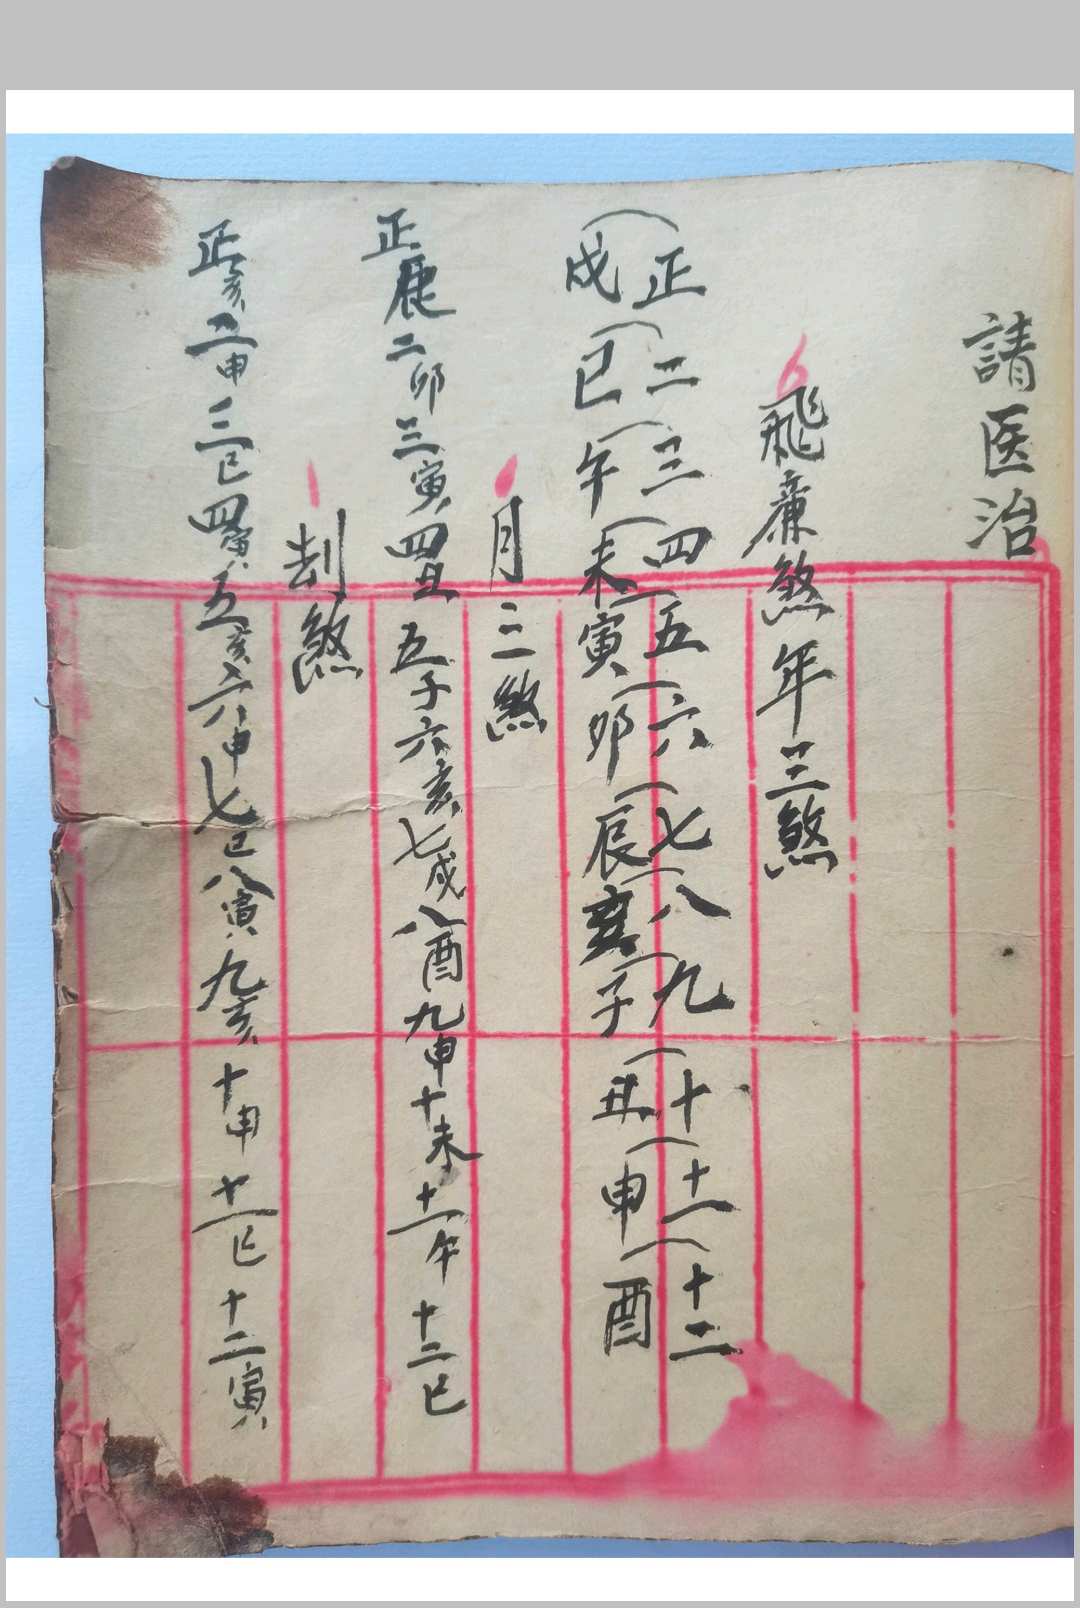 請医治
飛廉煞年三煞
正二三四五六七八九十十一十二
戌巳午未寅卯辰亥子丑申酉
月三煞
正辰二卯三寅四丑五子六亥七戌八酉九申十未十一午十二巳
刦煞
正亥二申三巳四寅五亥六申七巳八寅九亥十申十一巳十二寅